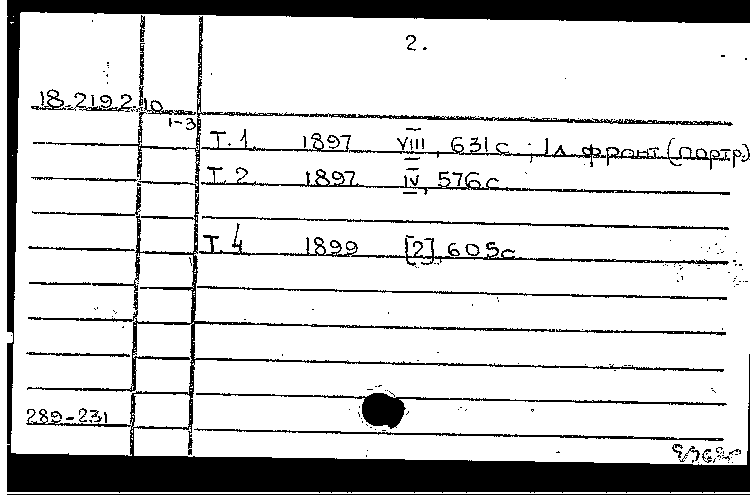 2.
18.219.2.10
1-3
Т.1 1897 VIII, 631 с ; 1л фронт (портр)
Т.2 1897 IV, 576 с
Т.4 1899 [2], 605 с
289-231